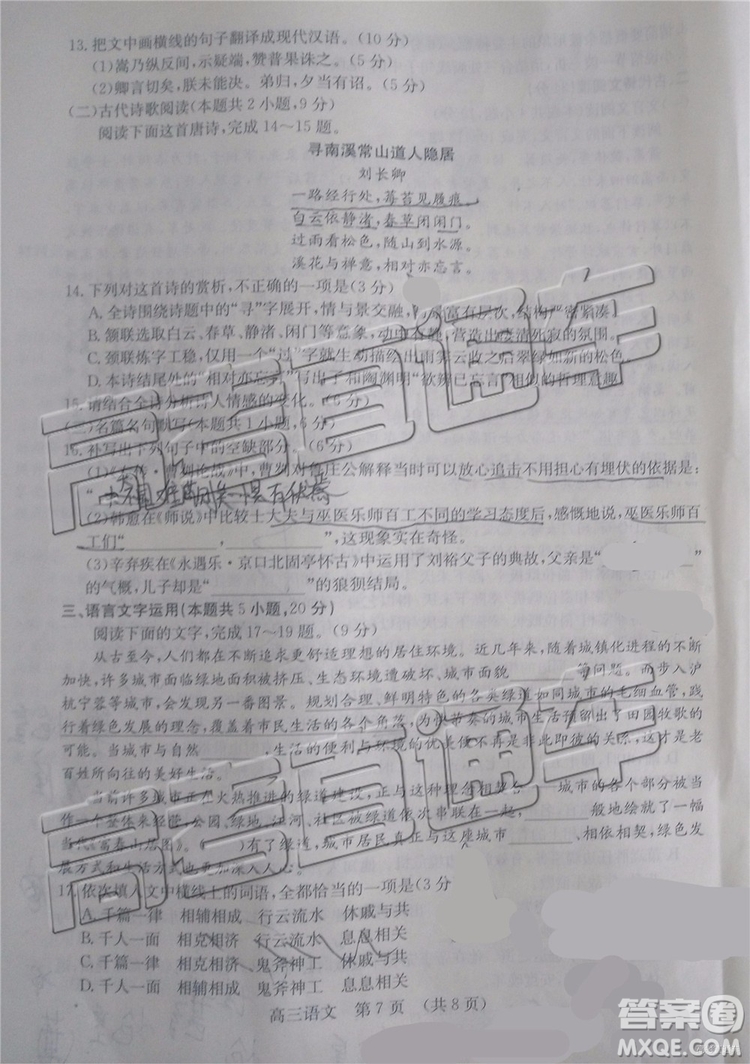 13.把文中画横线的句子翻译成现代汉语。(10分)
(1)嵩乃纵反间,示疑端,赞普果诛之。(5分)
(2)卿言切矣,朕未能决。弟归,夕当有诏。(5分)
(二)古代诗歌阅读(本题共2小题,9分)
阅读下面这首唐诗,完成14~15题。
寻南溪常山道人隐居
刘长卿
一路经行处,莓苔见屐痕。
白云依静渚,春草闭闲门。
过雨看松色,随山到水源。
溪花与禅意,相对亦忘言。
14.下列对这首诗的赏析,不正确的一项是(3分)
A.全诗围绕诗题中的“寻”字展开,情与景交融,富有层次,结构严密紧凑。
B.颔联选取白云、春草、静渚、闲门等意象,动中有静,营造出凄清死寂的氛围。
C.颈联炼字工稳,仅用一个“过”字就生动描绘出雨霁云收之后翠绿如新的松色
D.本诗结尾处的“相对亦忘言”写出了和陶渊明“欲辨已忘言”相似的哲理意趣
15.请结合全诗分析诗人情感的变化。(6分)
(三)名篇名句默写(本题共1小题,6分)
16.补写出下列句子中的空缺部分。(6分)
(1)《左传·曹刿论战》中,曹刿对鲁庄公解释当时可以放心追击不用担心有埋伏的依据是:
“
(2)韩愈在《师说》中比较士大夫与巫医乐师百工不同的学习态度后,感慨地说,巫医乐师百
工们“ , ”,这现象实在奇怪。
(3)辛弃疾在《永遇乐·京口北固亭怀古》中运用了刘裕父子的典故,父亲是“
的气概,儿子却是“ , ”的狼狈结局。
三、语言文字运用(本题共5小题,20分)
阅读下面的文字,完成17~19题。(9分)
从古至今,人们都在不断追求更舒适理想的居住环境。近几年来,随着城镇化进程的不断
加快,许多城市面临绿地面积被挤压、生态环境遭受破坏、城市面貌 等问题。而步入沪
杭宁蓉等城市,映入眼帘的是另一番图景。规划合理、鲜明特色的各类绿道如同城市的毛细血管,践
行着绿色发展的理念,覆盖着市民生活的各个角落,为快节奏的城市生活预留出了田园牧歌的
可能。当城市与自然 ,生活的便利与环境的优美不再是非此即彼的关系,这才是老
百姓所向往的美好生活。
当前许多城市正在火热推进的绿道建设, 城市的各个部分被当
作一个整体来经营,公园、绿地、江河、社区被绿道依次串联在一起, 般地绘就了一幅
当代《富春山居图》。( )有了绿道,城市居民真正与这座城市 、相依相契,绿色发
展方式和生活方式也就
17.依次填入文中横线上的词语,全都恰当的一项是(3分
A.千篇一律 相辅相成 行云流水 休戚与共
B.千人一面 相克相济 行云流水 息息相关
C.千篇一律 相克相济 鬼斧神工 休戚与共
D.千人一面 相辅相成 鬼斧神工 息息相关
高三语文 第7页 (共8页)
高考直通车
高考直通车
答案圈
MXQE.COM